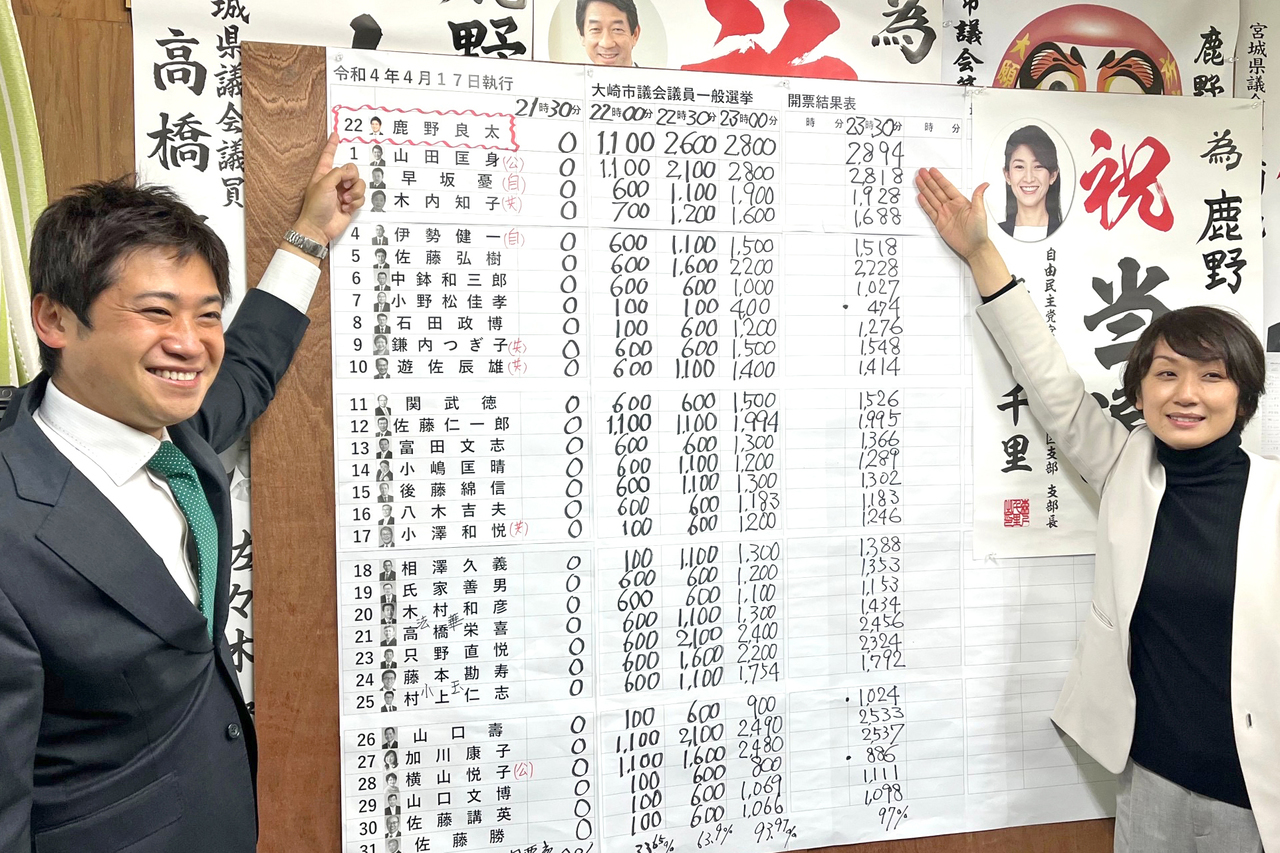 城県議会議員
高橋
鹿野
祝
為
市議会議
大願
鹿野
宮城県議会
令和4年4月17日執行 大崎市議会議員一般選挙 開票結果表
21時30分 22時00分 22時30分 23時00分 時 分 23時30分 時 分
22 鹿野良太 0 1,100 2,600 2,800 2,894
1 山田匡身 (公) 0 1,100 2,100 2,800 2,818
早坂憂 (自) 0 600 1,100 1,900 1,928
木内知子 (共) 0 700 1,200 1,600 1,688
4 伊勢健一 (自) 0 600 1,100 1,500 1,518
5 佐藤弘樹 0 600 1,600 2200 2228
6 中鉢和三郎 0 600 600 1,000 1,027
7 小野松佳孝 0 100 100 400 474
8 石田政博 0 100 600 1,200 1,276
9 鎌内つぎ子 (共) 0 600 600 1,500 1,548
10 遊佐辰雄 (共) 0 600 1,100 1,400 1,414
11 関武徳 0 600 600 1,500 1,526
12 佐藤仁一郎 0 1,100 1,100 1,994 1,995
13 富田文志 0 600 600 1,300 1,366
14 小嶋匡晴 0 600 1,100 1,200 1,289
15 後藤綿信 0 600 1,100 1,300 1,302
16 八木吉夫 0 600 600 1,183 1,183
17 小澤和悦 (共) 0 100 600 1,200 1,246
18 相澤久義 0 100 1,100 1,300 1,388
19 氏家善男 0 600 600 1,200 1,353
20 木村和彦 0 600 600 1,100 1,153
法華
21 高橋栄喜 0 600 1,100 1,300 1,434
23 只野直悦 0 600 2,100 2,400 2,456
24 藤本勘寿 0 600 1,600 2,200 2,324
小玉
25 村上仁志 0 600 1,100 1,754 1,792
26 山口壽 0 100 600 900 1,024
27 加川康子 0 1,100 2,100 2,490 2533
28 横山悦子 (公) 0 1,100 1,600 2,480 2537
29 山口文博 0 100 600 800 886
30 佐藤講英 0 100 600 1,069 1,111
31 佐藤勝 0 100 600 1,066 1,098
63.9% 93.97% 97%
為 鹿野
祝 当
自由民主党
支部 支部長
千里
佐々木